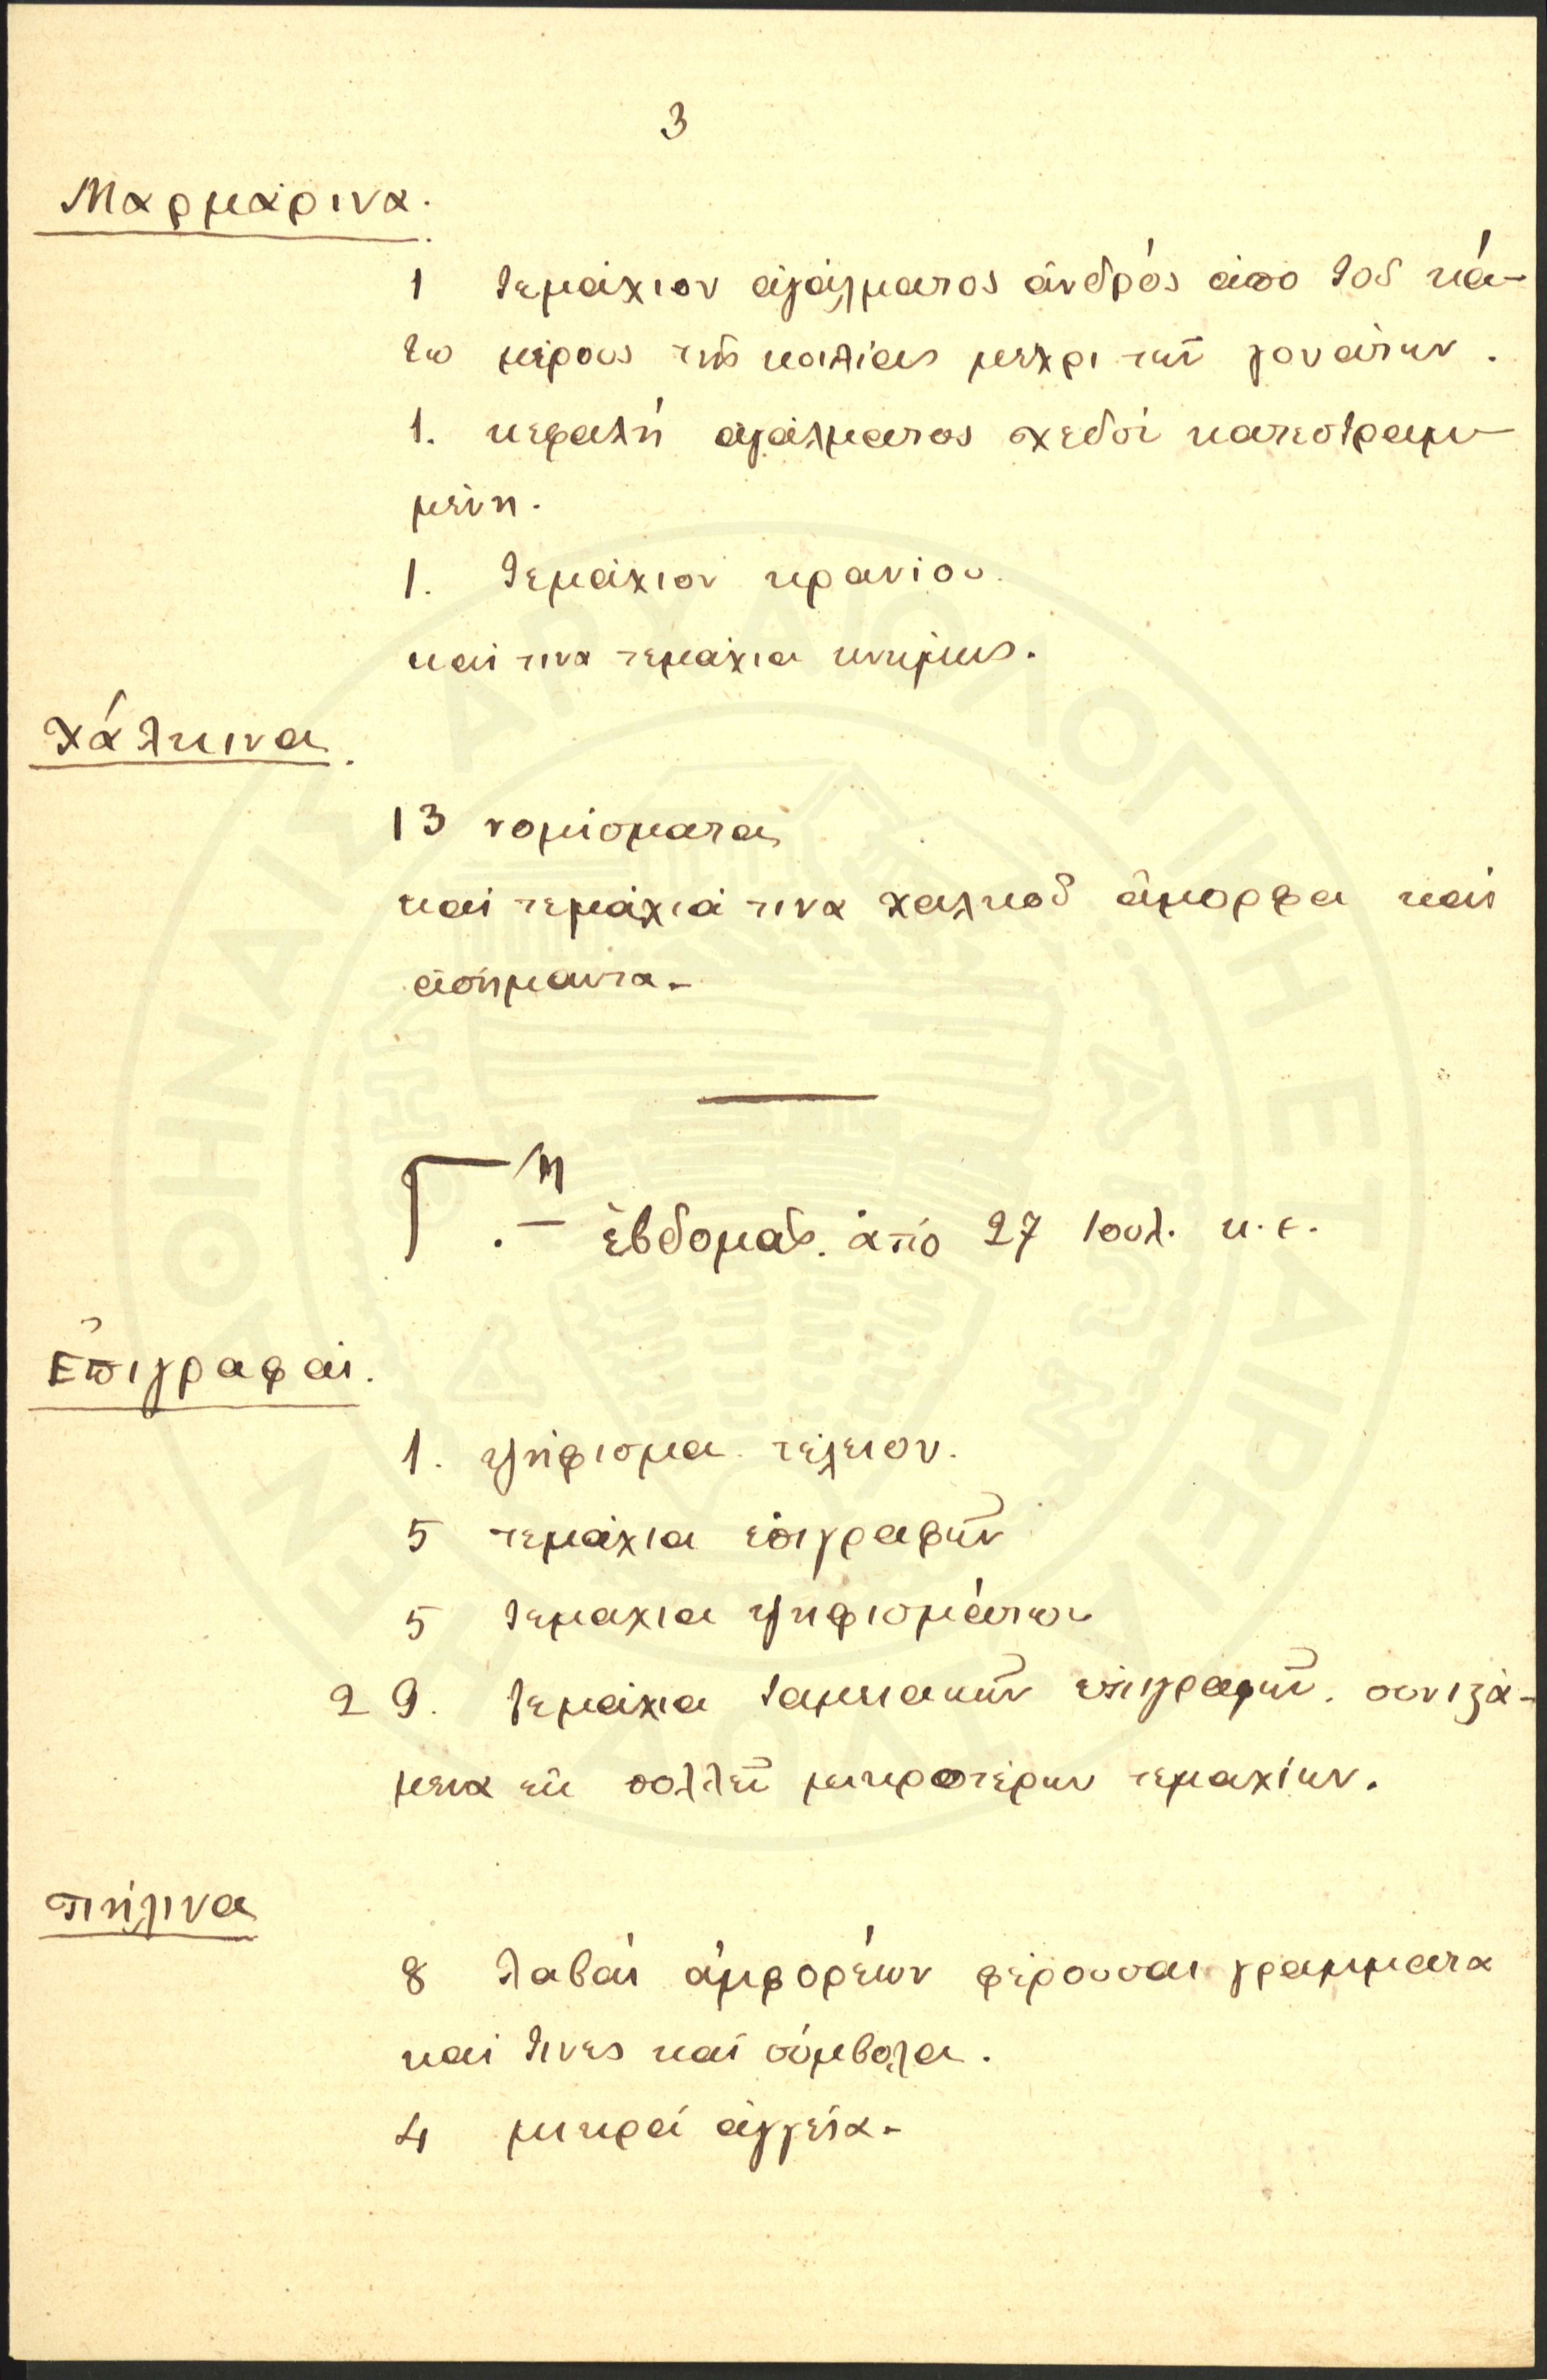 3
Μαρμάρινα.
1 τεμάχιον αγάλματος ἀνδρός ἀπο τοῦ κά-
τω μέρους τῆς κοιλίας μέχρι τῶν γονάτων.
1. κεφαλή αγάλματος σχεδόν κατεστραμ-
μένη.
1. τεμάχιον κρανίου.
καί τινα τεμάχια κνήμης.
Χάλκινα.
13 νομίσματα
καί τεμάχιά τινα χαλκοῦ ἄμορφα καί
ἀσήμαντα.
Γ.η ἑβδομάς. ἀπό 27 Ιουλ. κ.ε.
Ἐπιγραφαί.
1. ψήφισμα τέλειον.
5 τεμάχια ἐπιγραφῶν
5 τεμαχια ψηφισμάτων
29. τεμάχια ταμειακῶν ἐπιγραφῶν. συνιζά-
μενα ἐκ πολλῶν μικροτέρων τεμαχίων.
πήλινα
8 λαβαί ἀμφορέων φέρουσαι γραμματα
καί τινες καί σύμβολα.
4 μικρά ἀγγεῖα.
ΕΝ ΑΘΗΝΑΙΣ ΑΡΧΑΙΟΛΟΓΙΚΗ ΕΤΑΙΡΕΙΑ